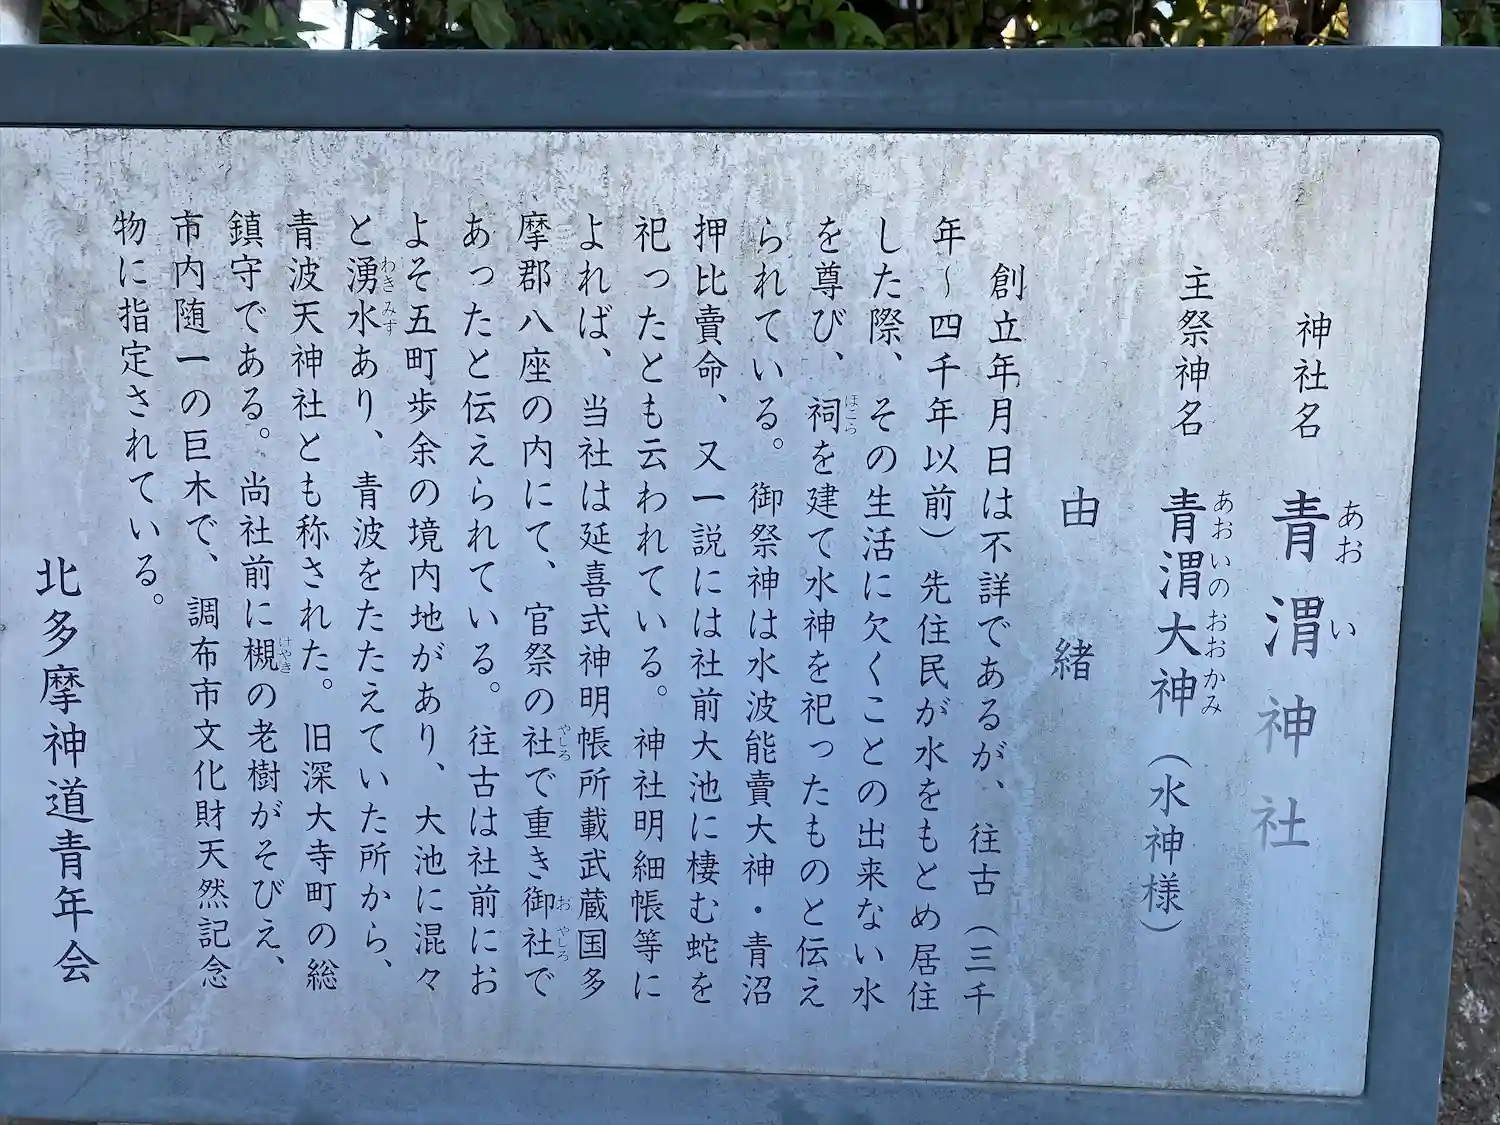 神社名 青渭神社
あおい
主祭神名 青渭大神（水神様）
あおいのおおかみ
由緒
創立年月日は不詳であるが、往古（三千
年～四千年以前）先住民が水をもとめ居住
した際、その生活に欠くことの出来ない水
を尊び、祠を建て水神を祀ったものと伝え
ほこら
られている。御祭神は水波能賣大神・青沼
押比賣命、又一説には社前大池に棲む蛇を
祀ったとも云われている。神社明細帳等に
よれば、当社は延喜式神明帳所載武蔵国多
摩郡八座の内にて、官祭の社で重き御社で
やしろ おやしろ
あったと伝えられている。往古は社前にお
よそ五町歩余の境内地があり、大池に混々
と湧水あり、青波をたたえていた所から、
わきみず
青波天神社とも称された。旧深大寺町の総
鎮守である。尚社前に槻の老樹がそびえ、
けやき
市内随一の巨木で、調布市文化財天然記念
物に指定されている。
北多摩神道青年会